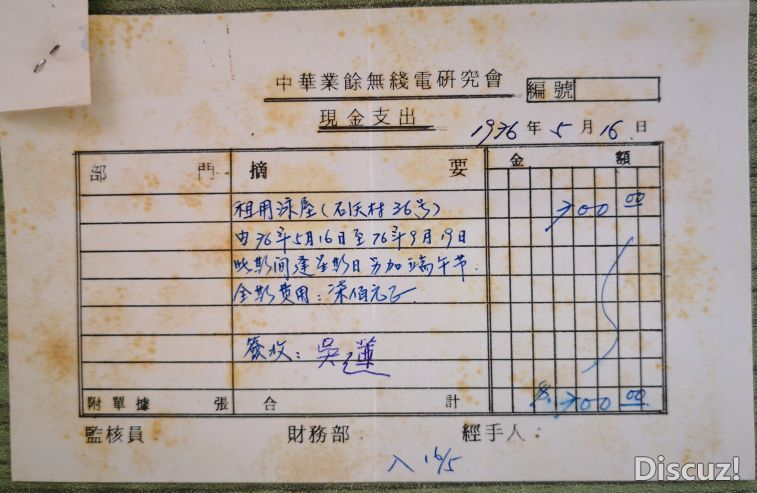 中華業餘無綫電研究會
編號
現金支出
1976年5月16日
部門 摘要 金額
租用涼屋(石沃村36号) 700 00
由76年5月16日至76年9月19日
此期间逢星期日另加端午节.
全期费用:柒佰元正
簽收:吳蓮
附單據 張 合計 700 00
監核員 財務部 經手人:
入 16/5
Discuz!